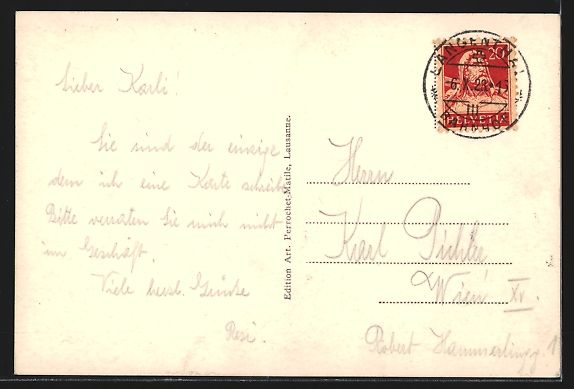 Lieber Karli!
Sie sind der einzige
dem ich eine Karte schreibe
Bitte verraten Sie mich nicht
im Geschäft.
Viele herzl. Grüsse
Resi.
Edition Art. Perrochet-Matile, Lausanne.
20
LANGENTHAL
6.X.23
III
HELVETIA
Herrn
Karl Pichler
Wien XV.
Robert Hammerlingg. 1